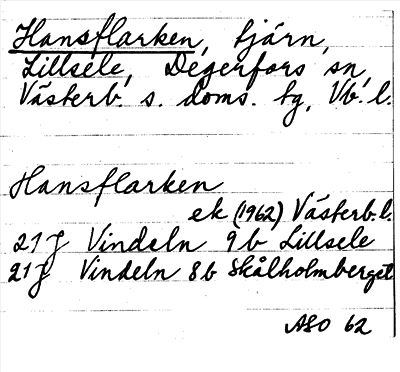 Hansflarken, tjärn,
Lillsele, Degerfors sn,
Västerb. s. doms. tg, Vb. l.
Hansflarken
ek (1962) Västerb. l.
21J Vindeln 9b Lillsele
21J Vindeln 8b Skålholmberget
ASO 62